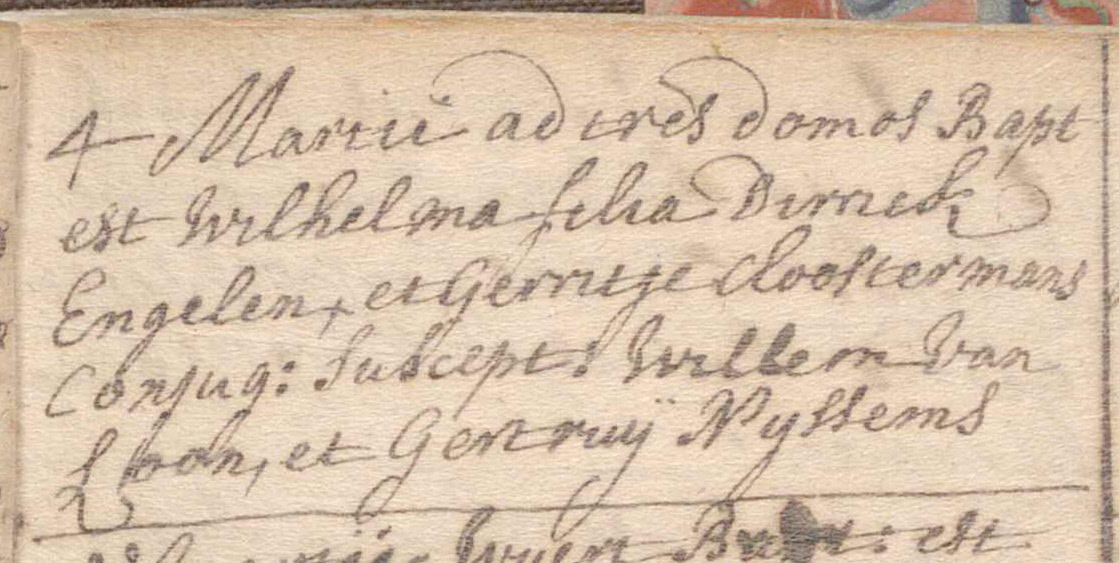 4 Martii ad tres domos Bapt
est Wilhelma filia Dirrick
Engelen, et Gerritje Cloostermans
Conjug: Suscept: Willem Van
Loon, et Gertruÿ Nyssems
Bapt: est